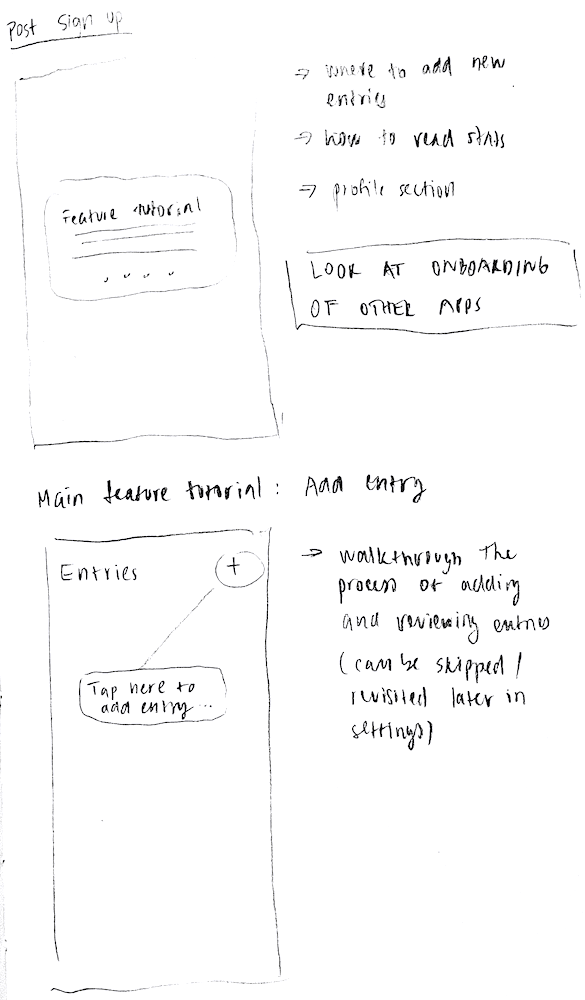 Post Sign up
→ where to add new
entries
→ how to read stats
→ profile section
Feature tutorial
LOOK AT ONBOARDING
OF OTHER APPS
Main feature tutorial: Add entry
Entries
+
Tap here to
add entry...
→ walkthrough the
process of adding
and reviewing entries
(can be skipped/
revisited later in
settings)